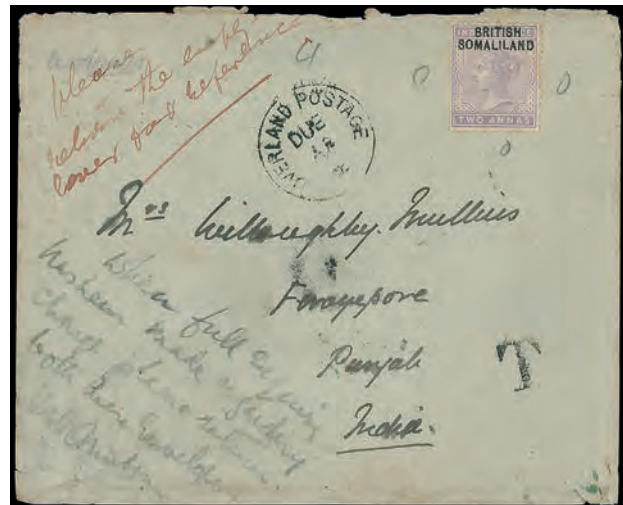 please
return the empty
cover for reference
BRITISH
SOMALILAND
TWO ANNAS
OVERLAND POSTAGE
DUE
Mrs Willoughby. Mullins
Ferozepore
Punjab
India.
T
When full enquiry
has been made regarding
charge please return
both this envelope